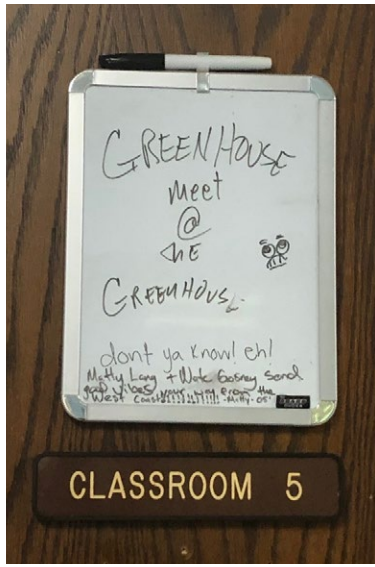 GREENHOUSE
meet
@
the
GREENHOUSE
dont ya know! eh!
Matty Long + Nate Gosney send
good vibes your way from the
West Coast!!!!!!!!! -Matty-05'
CLASSROOM 5